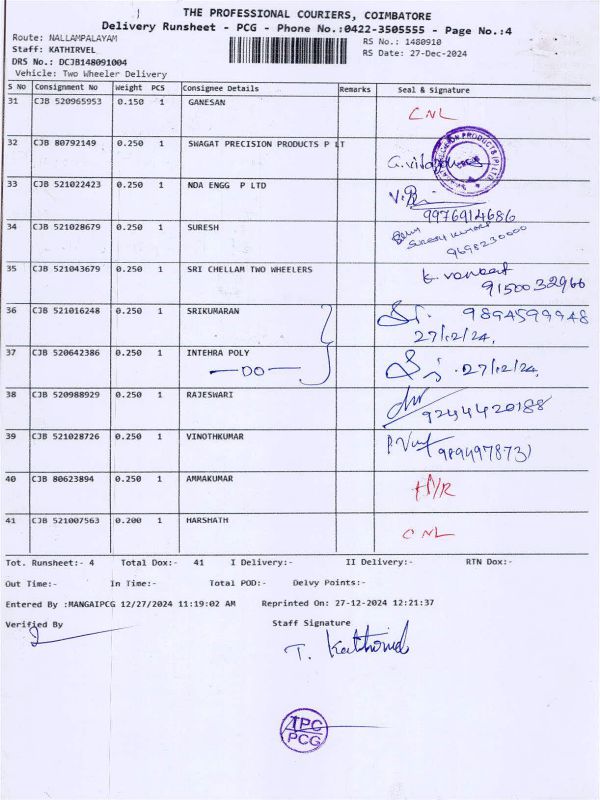 THE PROFESSIONAL COURIERS, COIMBATORE
Delivery Runsheet - PCG - Phone No.:0422-3505555 - Page No.:4
Route: NALLAMPALAYAM
RS No.: 1480910
Staff: KATHIRVEL
RS Date: 27-Dec-2024
DRS No.: DCJB148091004
Vehicle: Two Wheeler Delivery
S No Consignment No Weight PCS Consignee Details Remarks Seal & Signature
31 CJB 520965953 0.150 1 GANESAN CNL
32 CJB 80792149 0.250 1 SWAGAT PRECISION PRODUCTS P LT
33 CJB 521022423 0.250 1 NDA ENGG P LTD
9976914686
34 CJB 521028679 0.250 1 SURESH
9698230000
35 CJB 521043679 0.250 1 SRI CHELLAM TWO WHEELERS
9150032966
36 CJB 521016248 0.250 1 SRIKUMARAN 9894599948
27/12/24,
37 CJB 520642386 0.250 1 INTEHRA POLY
—DO— 27/12/24,
38 CJB 520988929 0.250 1 RAJESWARI
9244420188
39 CJB 521028726 0.250 1 VINOTHKUMAR
9894978731
40 CJB 80623894 0.250 1 AMMAKUMAR
41 CJB 521007563 0.200 1 HARSHATH CNL
Tot. Runsheet:- 4 Total Dox:- 41 I Delivery:- II Delivery:- RTN Dox:-
Out Time:- In Time:- Total POD:- Delvy Points:-
Entered By :MANGAIPCG 12/27/2024 11:19:02 AM Reprinted On: 27-12-2024 12:21:37
Verified By Staff Signature
TPC
PCG